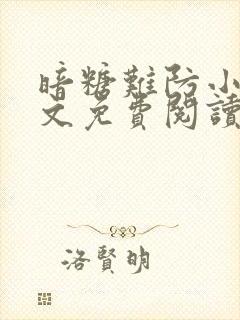 暗糖難防小
文免費閱讀
洛賢明